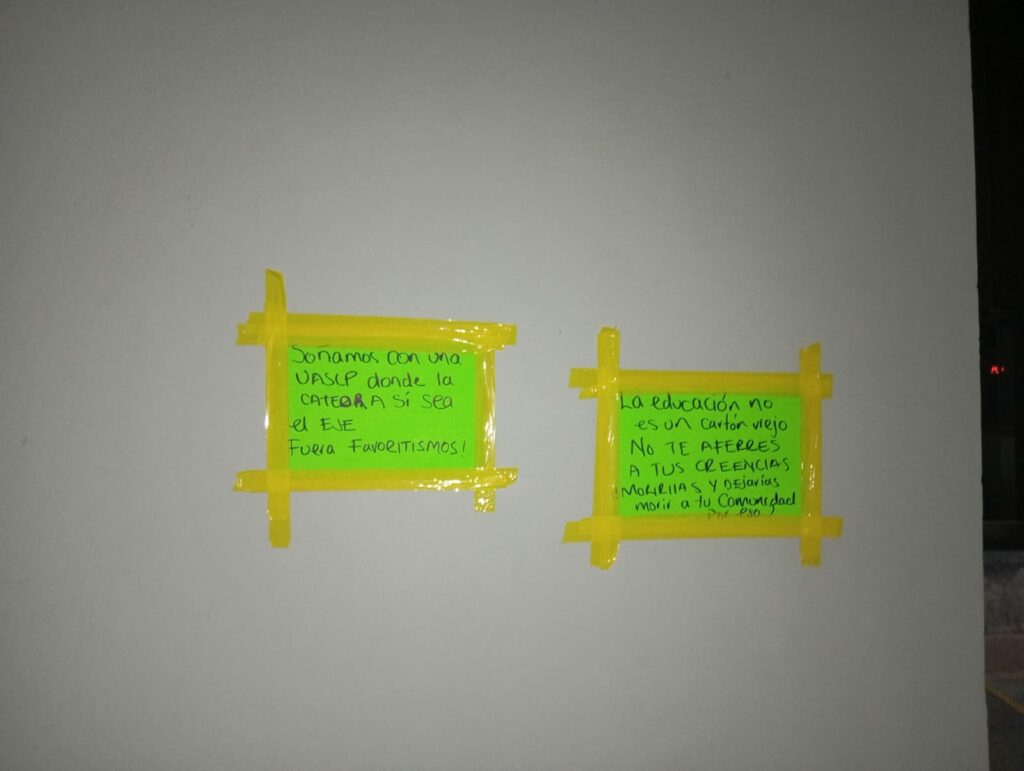 Soñamos con una
UASLP donde la
CATEDRA SÍ Sea
el EJE
Fuera FAVORITISMOS!
La educación no
es un cartón viejo
NO TE AFERRES
A TUS CREENCIAS
MORIRIAS Y DEJARÍAS
morir a tu Comunidad
Por eso